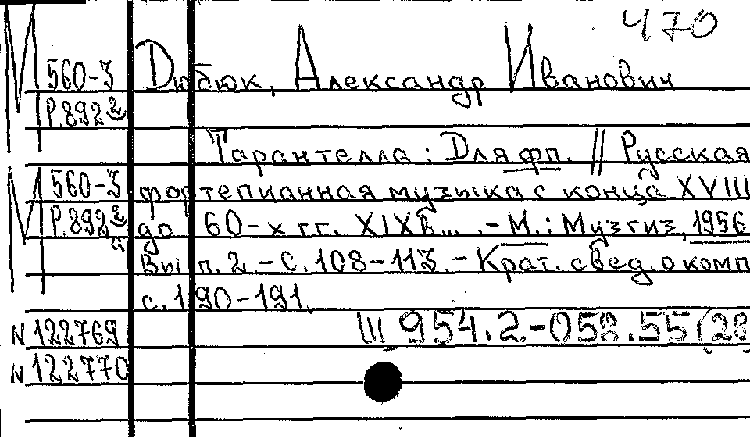 470
М 560-3 Дюбюк, Александр Иванович
Р.892
Тарантелла: Для фп. // Русская
М 560-3 фортепианная музыка с конца XVIII
Р.892 до 60-х гг. XIX в... .- М.: Музгиз, 1956
Вып. 2. - С. 108-113. - Крат. свед. о комп
с. 190-191.
N 122769 Ш 954.2-058.55(28
N 122770